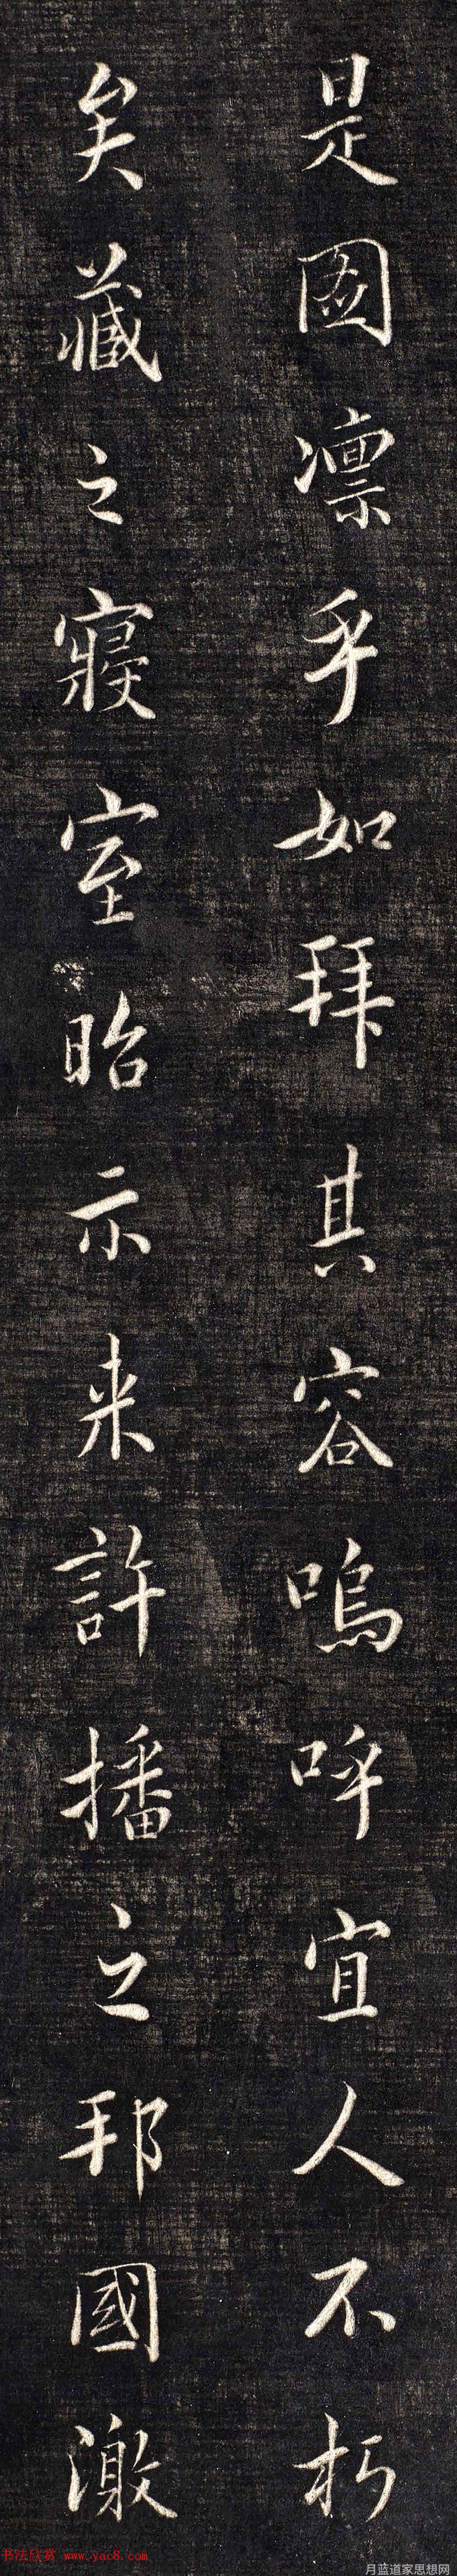 是圖凛乎如拜其容嗚呼宜人不朽
矣藏之寢室昭示来許播之邦國激
书法欣赏 www.yac8.com
月蓝道家思想网